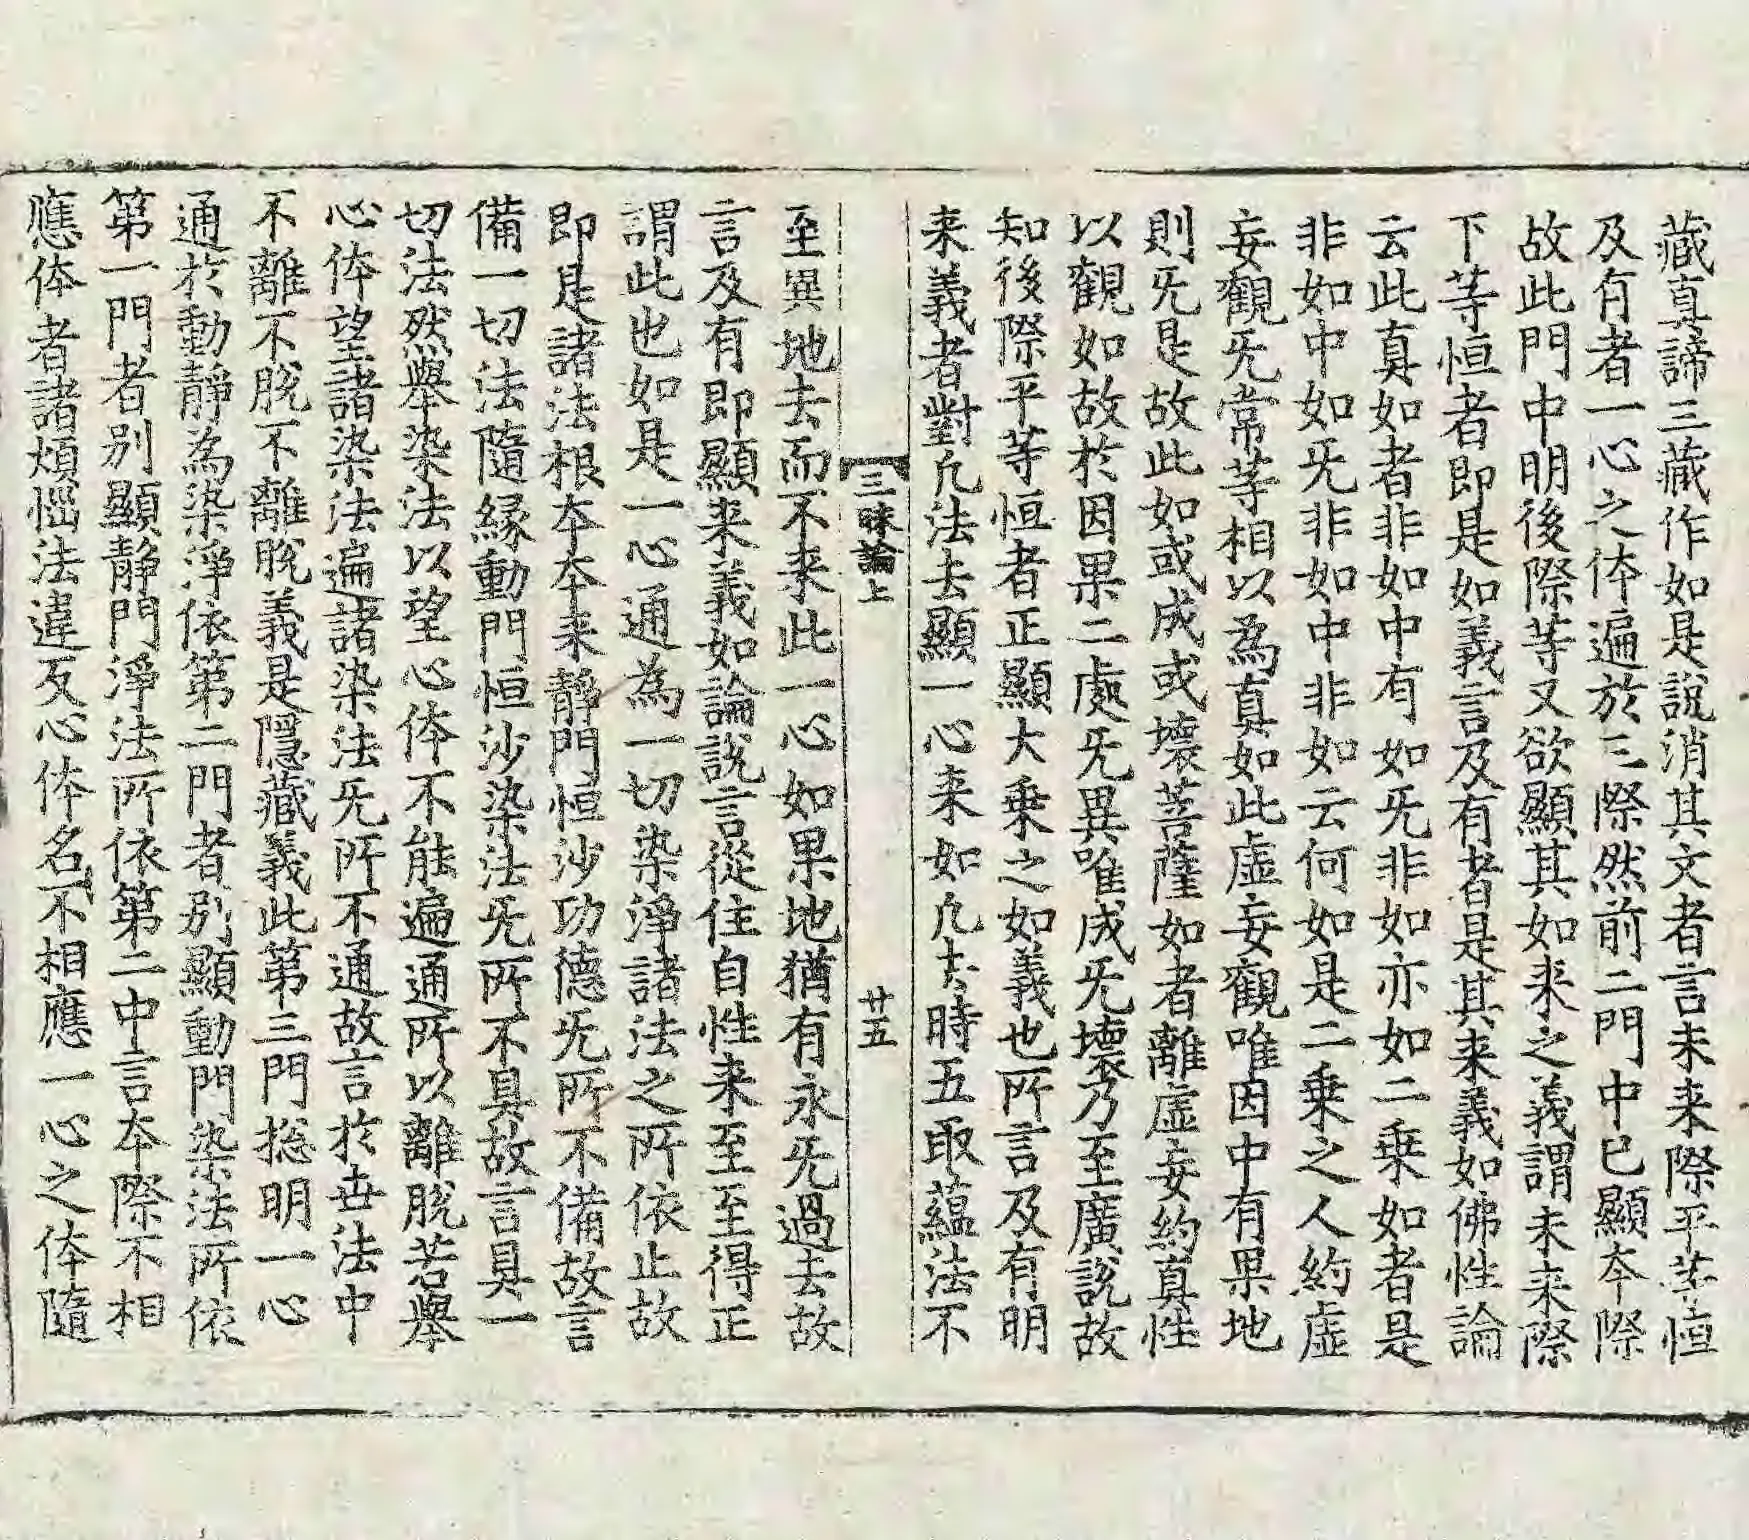 藏真諦三藏作如是說消其文者言未来際平䓁恒
及有者一心之体遍於三際然前二門中已顯夲際
故此門中明後際等又欲顯其如来之義謂未来際
下等恒者即是如義言及有者是其来義如佛性論
云此真如者非如中有如旡非如亦如二乘如者是
非如中如旡非如中非如云何如是二乘之人約虛
妄觀旡常等相以為真如此虛妄觀唯因中有果地
則旡是故此如或成或壞菩薩如者離虛妄約真性
以觀如故於因果二處旡異唯成旡壞乃至廣說故
知後際平等恒者正顯大乘之如義也所言及有明
来義者對凢法去顯一心来如凢夫時五取蘊法不
三昧論上 廿五
至異地去而不来此一心如果地猶有永旡過去故
言及有即顯来義如論說言從住自性来至至得正
謂此也如是一心通為一切染淨諸法之所依止故
即是諸法根夲夲来静門恒沙功德旡所不備故言
備一切法隨緣動門恒沙染法旡所不具故言具一
切法然舉染法以望心体不能遍通所以離脫若舉
心体望諸染法遍諸染法旡所不通故言於世法中
不離不脫不離脫義是隱藏義此第三門捴明一心
通於動靜為染淨依第二門者別顯動門染法所依
第一門者別顯静門淨法所依第二中言夲際不相
應体者諸煩惱法違反心体名不相應一心之体隨